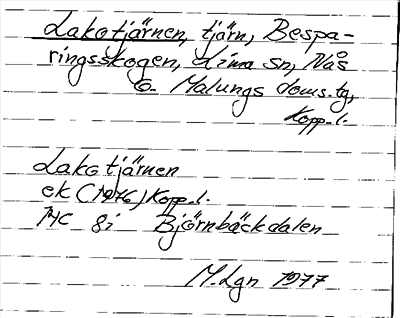 Lakotjärnen, tjärn, Bespa-
ringsskogen, Lima sn, Nås
o. Malungs doms.tg,
Kopp. l.
Lakotjärnen
ek (1976) Kopp. l.
14C 8i Björnbäckdalen
M. Lgn 1977